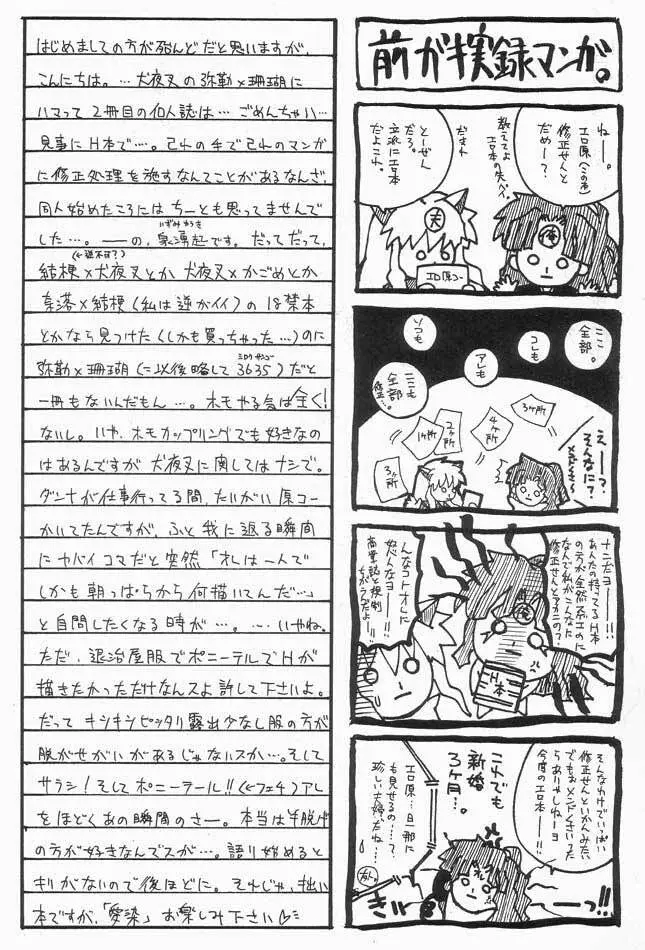 前がき実録マンガ。
はじめましての方が殆んどだと思いますが、
こんにちは。…犬夜叉の弥勒×珊瑚に
ハマって2冊目の個人誌は…ごめんちゃい…
見事にH本で…。己れの手で己れのマンガ
に修正処理を施すなんてことがあるなんざ、
同人始めたころにはちーとも思ってませんで
した…。――の、
です。だってだって、
(←逆不可?)
桔梗×犬夜叉とか犬夜叉×かごめとか
奈落×桔梗(私は逆がイイ)の18禁本
とかなら見つけた(しかも買っちゃった…)のに
弥勒×珊瑚(に以後略して3635)だと
一冊もないんだもん…。ホモやる気は全く!
ないし。いや、ホモカップリングでも好きなの
はあるんですが犬夜叉に関してはナシで。
ダンナが仕事行ってる間、たいがい原コー
かいてたんですが、ふと我に返る瞬間
にヤバイコマだと突然「オレは一人で
しかも朝っぱらから何描いてんだ…」
と自問したくなる時が…。…いやね。
ただ、退治屋服でポニーテールでHが
描きたかっただけなんスよ許して下さいよ。
だってキシキシピッタリ露出少なし服の方が
脱がせがいがあるじゃないスか…。そして
サラシ!そしてポニーテール!!(←フェチ)アレ
をほどくあの瞬間のさー。本当は半脱げ
の方が好きなんでスが…。語り始めると
キリがないので後ほどに。それじゃ、拙い
本ですが、「愛染」お楽しみ下さい
ねー。
エロ原(この本)
修正せんと
だめー?
教えてよ
エロ本の先パイ。
だまれ
とーぜん
だろ。
立派にエロ本
だよこれ。
夫
俺
エロ原コー
ここ
全部。
コレも
アレも
ソコも
ここも
全部…
修正…。
3ヶ所
4ヶ所
2ヶ所
1ヶ所
3ヶ所
えーっ?
そんなに?
ナニだョー!!
あんたの持ってるH本
の方が全然エロエロなのに
なんで私がこんなに
修正せんとアカンの?
んなコトオレに
怒んなョー!!
商業誌と規制
ちがうんだよー!
俺
H本
そんなわけでいっぱい
修正せんといかんみたい
でもおメンドくさいったら
らありゃしねーョ
今度のエロ本――!!
これでも
新婚
3ヶ月…。
エロ原…旦那に
も見せるの…?
珍しい夫婦だね……
友人
ーっ!!